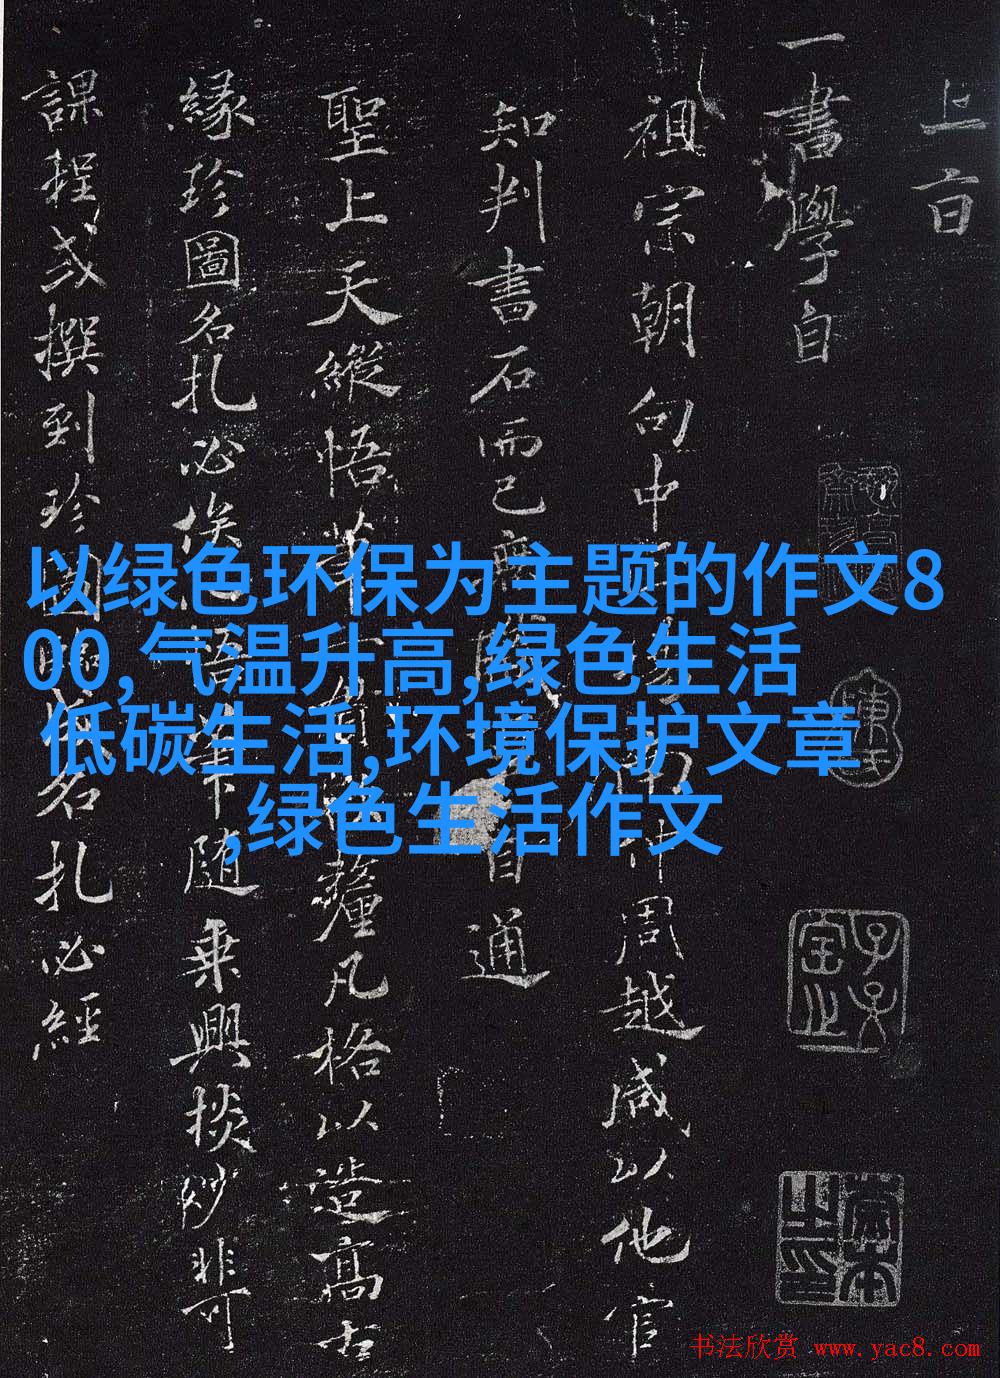 上百
一書學自
祖宗朝
向中
周越咸以他官
知判書石而已
自通
聖上天縱悟
釐凡格以造高古
緣珍圖名札必俟
隨乗興掞妙非可
課程或撰到珍
名札必經
以绿色环保为主题的作文8
00,气温升高,绿色生活
低碳生活,环境保护文章
,绿色生活作文
书法欣赏 www.yac8.com